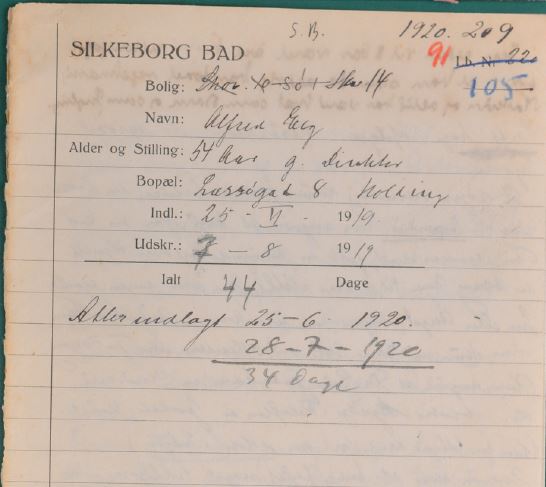 S.B. 1920. 209
SILKEBORG BAD 91 Lb. Nr. 220
105
Bolig: 14
Navn: Alfred
Alder og Stilling: 54 Aar g. Direktør
Bopæl: Læssøgade 8 Kolding
Indl.: 25 - VI - 1919.
Udskr.: 7 - 8 1919
Ialt 44 Dage
Atter indlagt 25-6. 1920.
28-7-1920
34 Dage